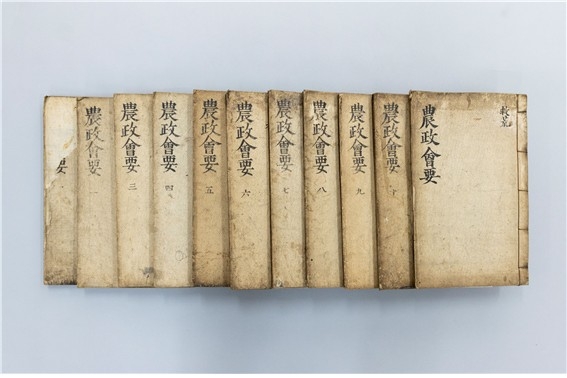 要
農政會要
農政會要 三
農政會要 四
農政會要 五
農政會要 六
農政會要 七
農政會要 八
農政會要 九
農政會要 十
農政會要
救荒